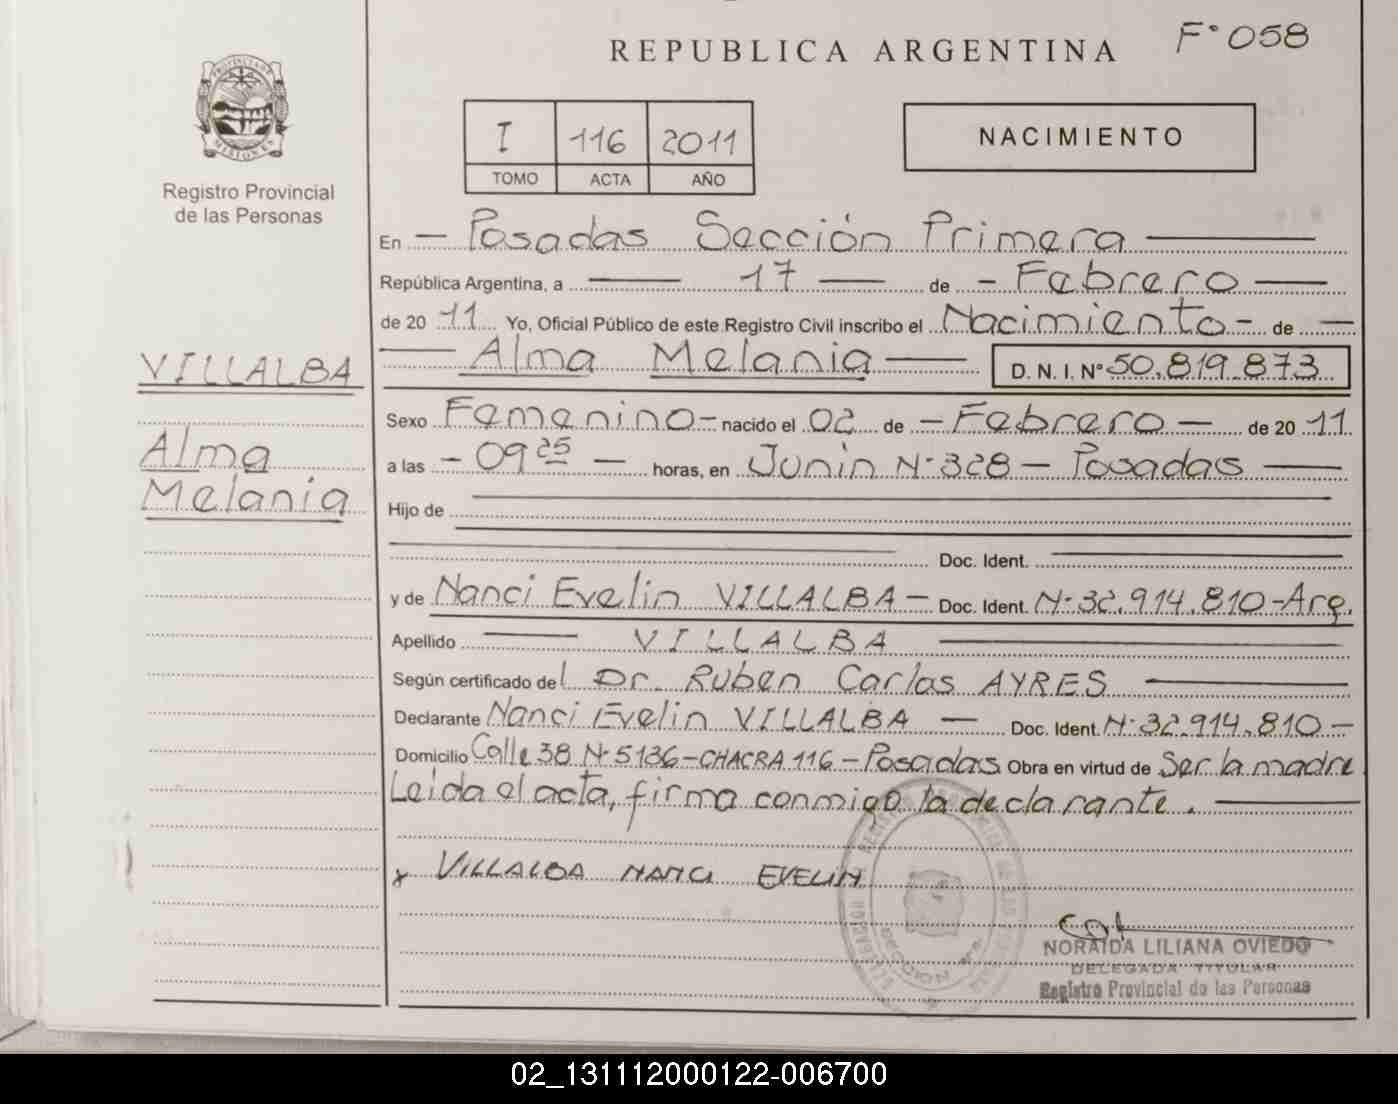 F° 058
REPUBLICA ARGENTINA
PROVINCIA DE MISIONES
Registro Provincial
de las Personas
I 116 2011
TOMO ACTA AÑO
NACIMIENTO
En — Posadas Sección Primera —
República Argentina, a — 17 — de – Febrero —
de 20 11 Yo, Oficial Público de este Registro Civil inscribo el Nacimiento – de —
— Alma Melania — D. N. I. N° 50.819.873
VILLALBA
Alma
Melania
Sexo Femenino – nacido el 02 de – Febrero — de 20 11
a las – 09 25 — horas, en Junin N° 328 – Posadas —
Hijo de —
— Doc. Ident. —
y de Nanci Evelin VILLALBA – Doc. Ident. N° 32.914.810-Arg.
Apellido — VILLALBA —
Según certificado del Dr. Ruben Carlas AYRES —
Declarante Nanci Evelin VILLALBA — Doc. Ident. N° 32.914.810 –
Domicilio Calle 38 N° 5136 – CHACRA 116 – Posadas Obra en virtud de Ser la madre
Leida el acta, firma conmigo la declarante. —
x VILLALBA NANCI EVELIN
NORAIDA LILIANA OVIEDO
DELEGADA TITULAR
Registro Provincial de las Personas
02_131112000122-006700